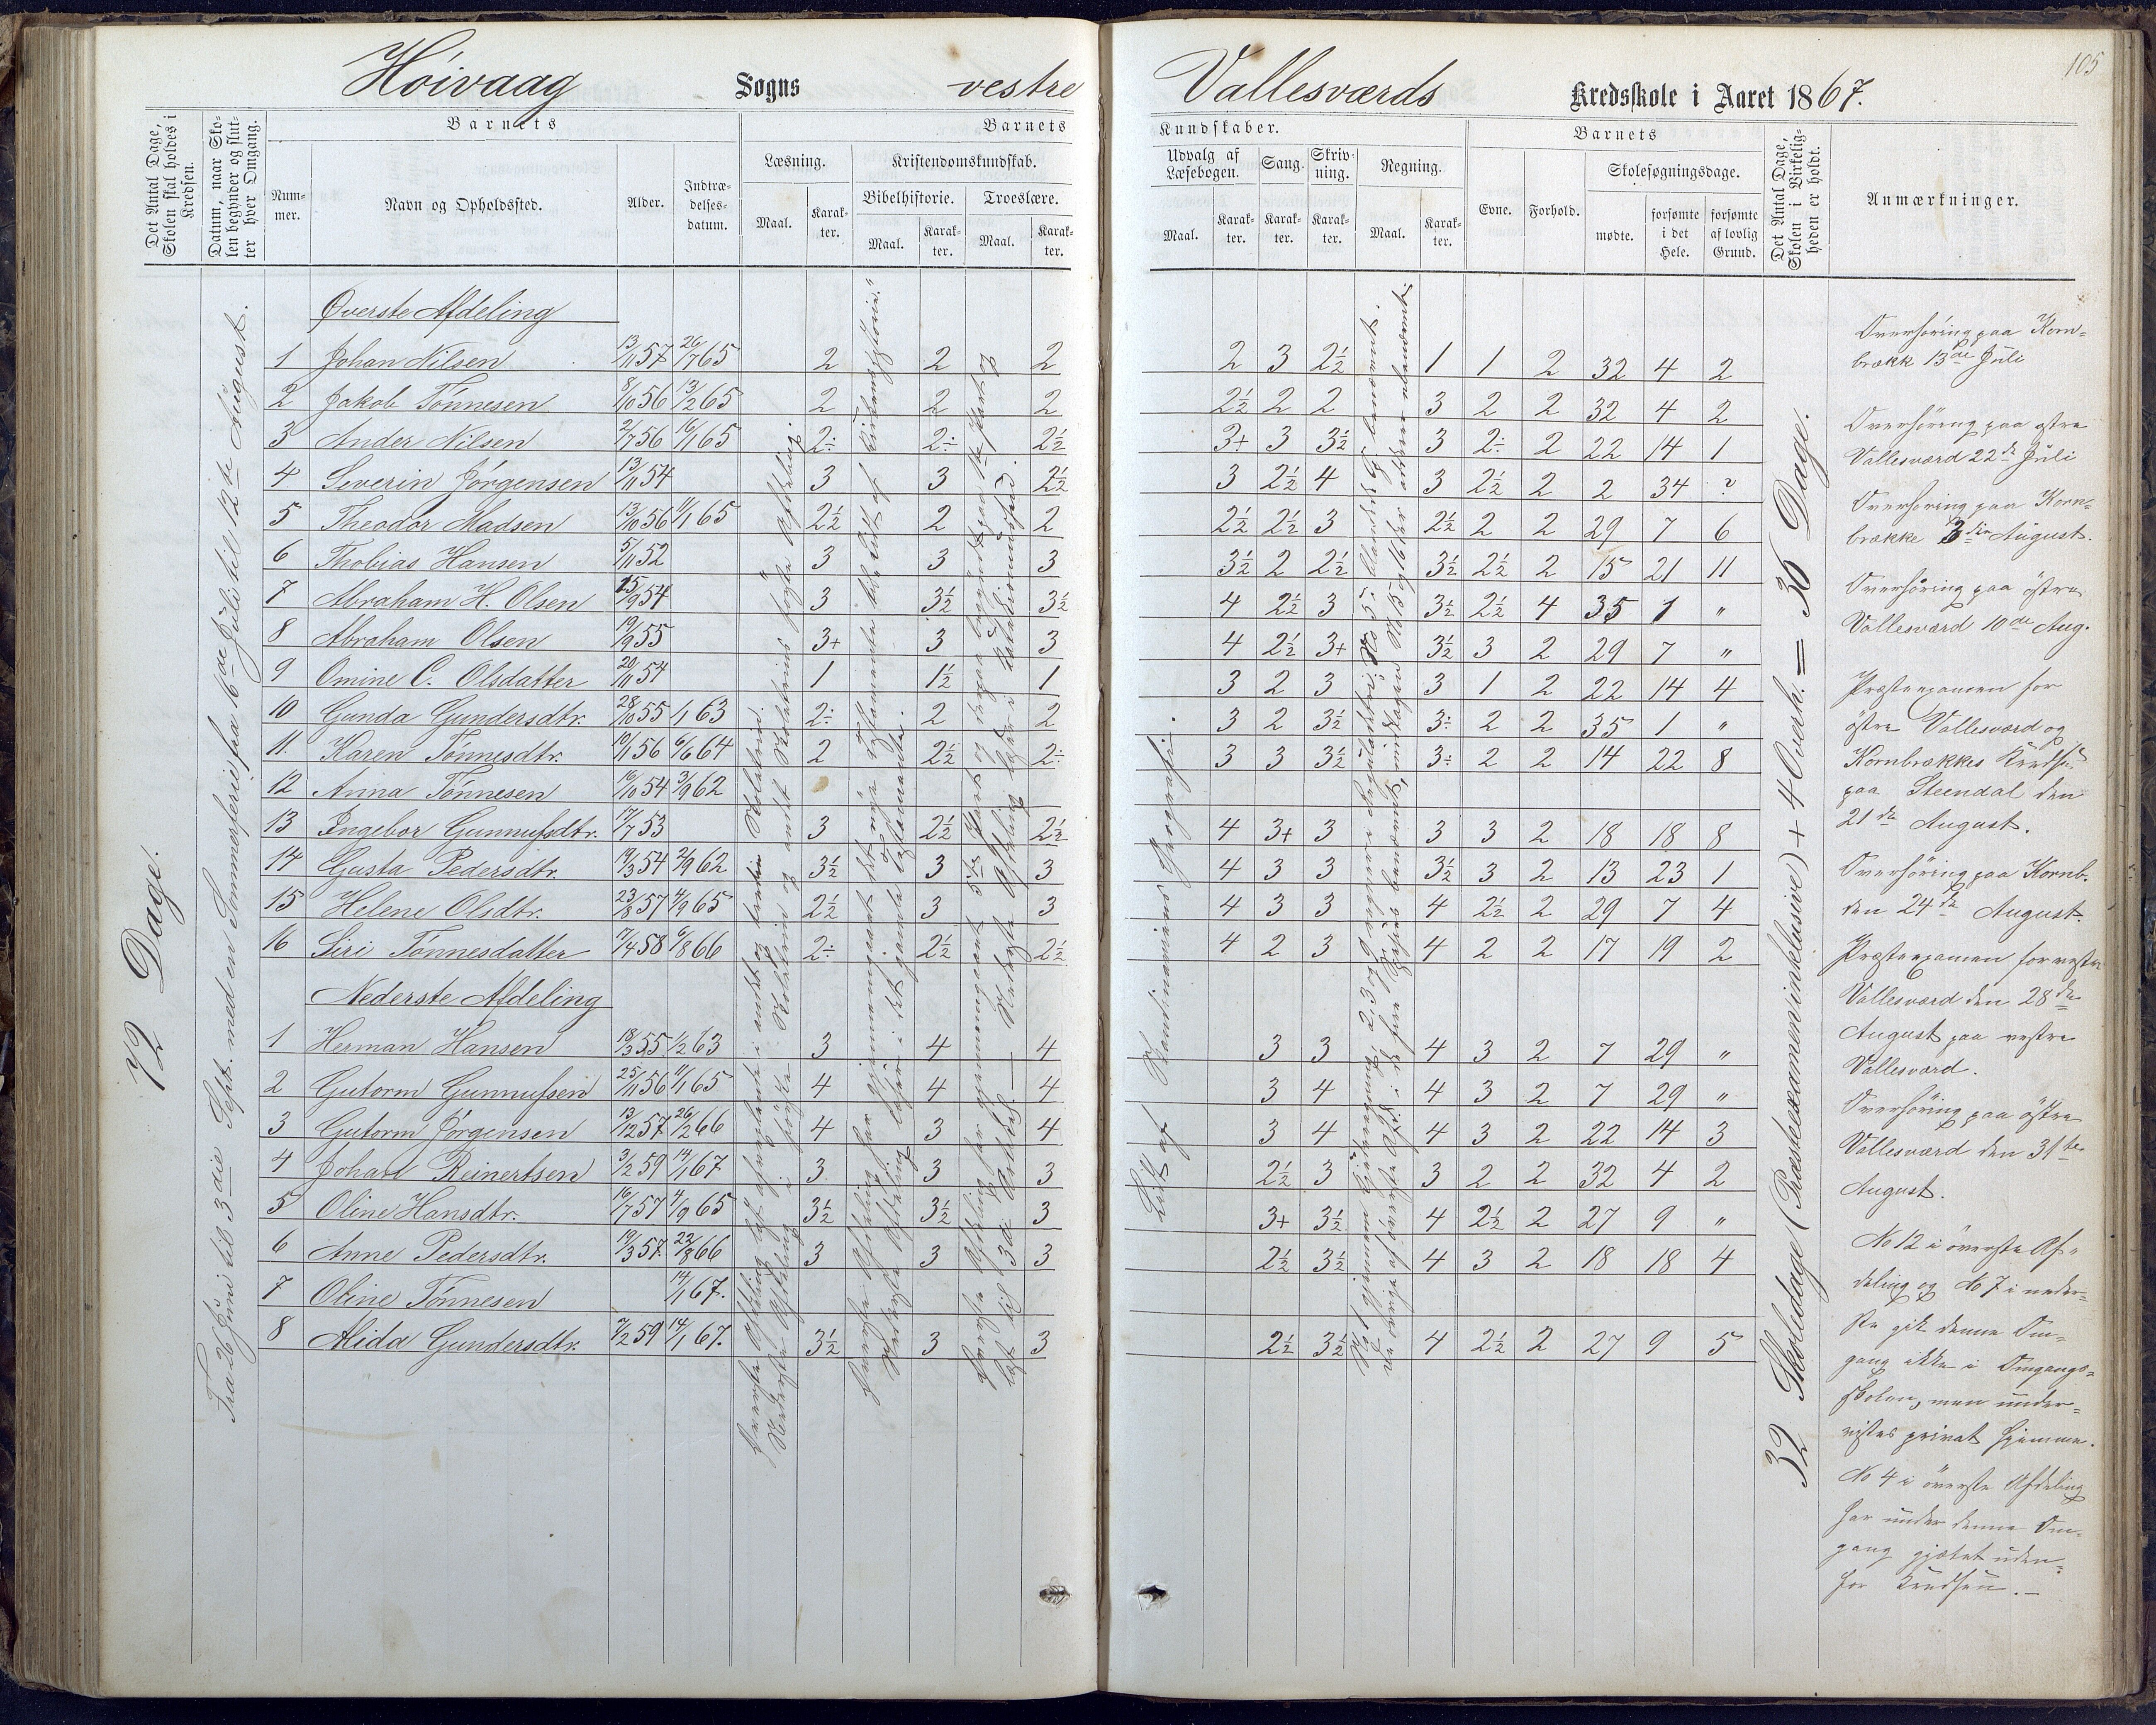 105
Höivaag Sogns vestre Vallesværds Kredsskole i Aaret 1867.
Det Antal Dage, Skolen skal holdes i Kredsen.
Datum, naar Skolen begynder og slutter hver Omgang.
Barnets
Nummer.
Navn og Opholdssted.
Alder.
Indtrædelsesdatum.
Barnets Kundskaber.
Læsning.
Maal. Karakter.
Kristendomskundskab.
Bibelhistorie. Troeslære.
Maal. Karakter. Maal. Karakter.
Udvalg af Læsebogen. Sang. Skrivning. Regning.
Maal. Karakter. Karakter. Karakter. Maal. Karakter.
Barnets
Evne. Forhold. Skolesøgningsdage.
mødte. forsømte i det Hele. forsømte af lovlig Grund.
Det Antal Dage, Skolen i Virkeligheden er holdt.
Anmærkninger.
72 Dage.
Fra 26 Juni til 3die Sept. med en Sommerferie fra 16de Juli til 12te August.
Øverste Afdeling
1 Johan Nilsen 13/11 57 26/7 65 2 2 2 2 3 2½ 1 1 2 32 4 2
2 Jakob Tönnesen 8/10 56 13/2 65 2 2 2 2½ 2 2 3 2 2 32 4 2
3 Ander Nilsen 2/7 56 16/1 65 2÷ 2÷ 2½ 3+ 3 3½ 3 2÷ 2 22 14 1
4 Severin Jörgensen 13/11 54 3 3 2½ 3 2½ 4 3 2½ 2 2 34 ?
5 Theodor Madsen 13/10 56 11/1 65 2½ 2 2 2½ 2½ 3 2½ 2 2 29 7 6
6 Thobias Hansen 5/11 52 3 3 3 3½ 2 2½ 3½ 2½ 2 15 21 11
7 Abraham H. Olsen 15/9 54 3 3½ 3½ 4 2½ 3 3½ 2½ 4 35 1 "
8 Abraham Olsen 19/9 55 3+ 3 3 4 2½ 3+ 3½ 3 2 29 7 "
9 Omine C. Olsdatter 20/11 54 1 1½ 1 3 2 3 3 1 2 22 14 4
10 Gunda Gundersdtr. 28/10 55 1/1 63 2÷ 2 2 3 2 3½ 3÷ 2 2 35 1 "
11. Karen Tönnesdtr. 10/1 56 6/6 64 2 2½ 2÷ 3 3 3½ 3÷ 2 2 14 22 8
12 Anna Tönnesen 16/10 54 3/9 62
13 Ingebor Gunnufsdtr. 17/7 53 3 2½ 2½ 4 3+ 3 3 3 2 18 18 8
14 Gusta Pedersdtr. 19/3 54 2/9 62 3½ 3 3 4 3 3 3½ 3 2 13 23 1
15 Helene Olsdtr. 23/8 57 4/9 65 2½ 3 3 4 3 3 4 2½ 2 29 7 4
16 Siri Tönnesdatter 7/4 58 6/8 66 2÷ 2½ 2½ 4 2 3 4 2 2 17 19 2
Nederste Afdeling
1 Herman Hansen 18/3 55 1/2 63 3 4 4 3 3 4 3 2 7 29 "
2 Gutorm Gunnufsen 25/11 56 11/1 65 4 4 4 3 4 4 3 2 7 29 "
3 Gutorm Jörgensen 13/12 57 26/2 66 4 3 4 3 4 4 3 2 22 14 3
4 Johan Reinertsen 3/2 59 14/1 67 3 3 3 2½ 3 3 2 2 32 4 2
5 Oline Hansdtr. 16/7 57 4/9 65 3½ 3½ 3 3+ 3½ 4 2½ 2 27 9 "
6 Anne Pedersdtr. 19/3 57. 22/8 66 3 3 3 2½ 3½ 4 3 2 18 18 4
7 Oline Tönnesen 14/1 67.
8 Alida Gundersdtr. 7/2 59 14/1 67. 3½ 3 3 2½ 3½ 4 2½ 2 27 9 5
Lidt af Skandinaviens Geografi.
32 Skoledage (Præsteexamen inklusive) + 4 Overh. = 36 Dage.
Overhöring paa Korn-
brække 13de Juli
Overhöring paa östre
Vallesværd 22de Juli
Overhöring paa Korn-
brække 3die August.
Overhöring paa östre
Vallesværd 10de Aug.
Præsteexamen for
östre Vallesværd og
Kornbrækkes Kredse
paa Steendal den
21de August.
Overhöring paa Kornb.
den 24de August.
Præsteexamen for vestre
Vallesværd den 28de
August paa vestre
Vallesværd.
Overhöring paa östre
Vallesværd den 31te
August.
No 12 i överste Af-
deling og No 7 i neder-
ste gik denne Om-
gang ikke i Omgangs-
skolen, men under-
vistes privat hjemme.
No 4 i överste Afdeling
har under denne Om-
gang gjætet uden-
for Kredsen.